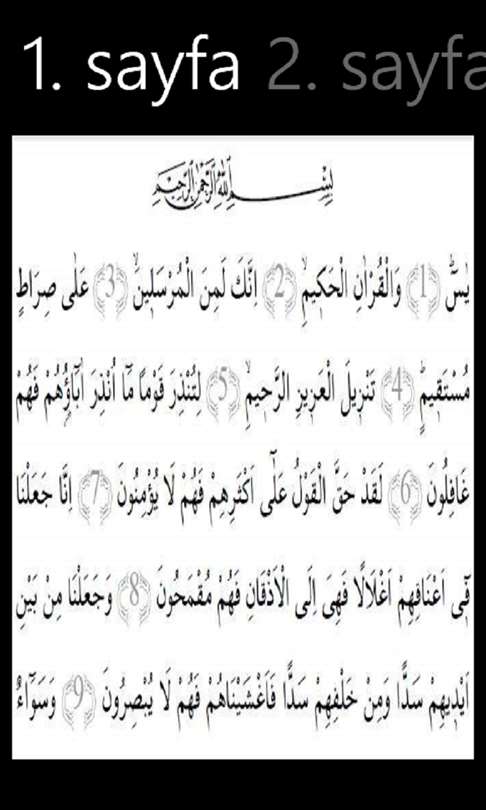 1. sayfa 2. sayfa
بِسْمِ اللّٰهِ الرَّحْمٰنِ الرَّحِيمِ
يٰسٓ ﴿1﴾ وَالْقُرْاٰنِ الْحَكِيمِ ﴿2﴾ اِنَّكَ لَمِنَ الْمُرْسَلِينَ ﴿3﴾ عَلٰى صِرَاطٍ
مُسْتَقِيمٍ ﴿4﴾ تَنْزِيلَ الْعَزِيزِ الرَّحِيمِ ﴿5﴾ لِتُنْذِرَ قَوْمًا مَٓا اُنْذِرَ اٰبَٓاؤُ۬هُمْ فَهُمْ
غَافِلُونَ ﴿6﴾ لَقَدْ حَقَّ الْقَوْلُ عَلٰٓى اَكْثَرِهِمْ فَهُمْ لَا يُؤْمِنُونَ ﴿7﴾ اِنَّا جَعَلْنَا
فِٓى اَعْنَاقِهِمْ اَغْلَالًا فَهِىَ اِلَى الْاَذْقَانِ فَهُمْ مُقْمَحُونَ ﴿8﴾ وَجَعَلْنَا مِنْ بَيْنِ
اَيْدِيهِمْ سَدًّا وَمِنْ خَلْفِهِمْ سَدًّا فَاَغْشَيْنَاهُمْ فَهُمْ لَا يُبْصِرُونَ ﴿9﴾ وَسَوَٓاءٌ